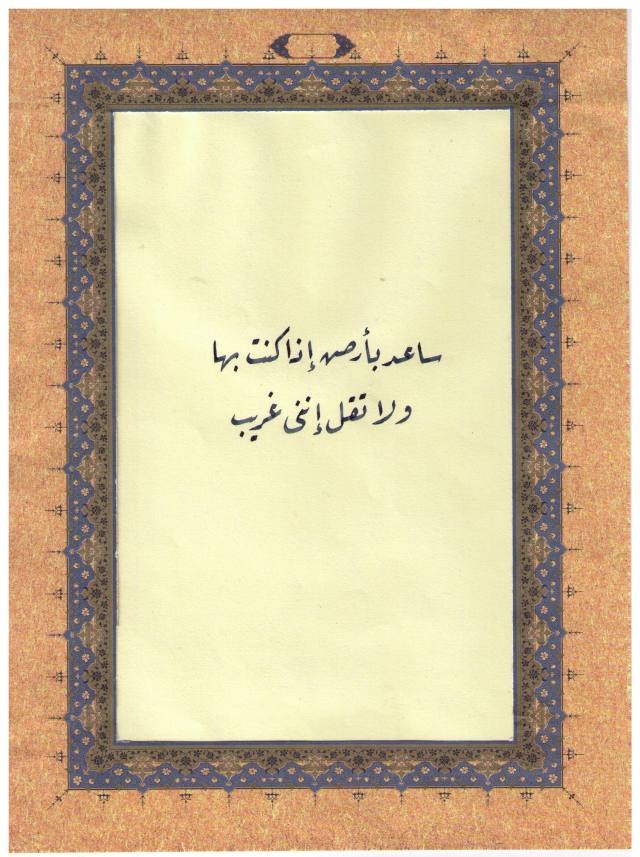 ساعد بأرض إذا كنت بها
ولا تقل إننى غريب